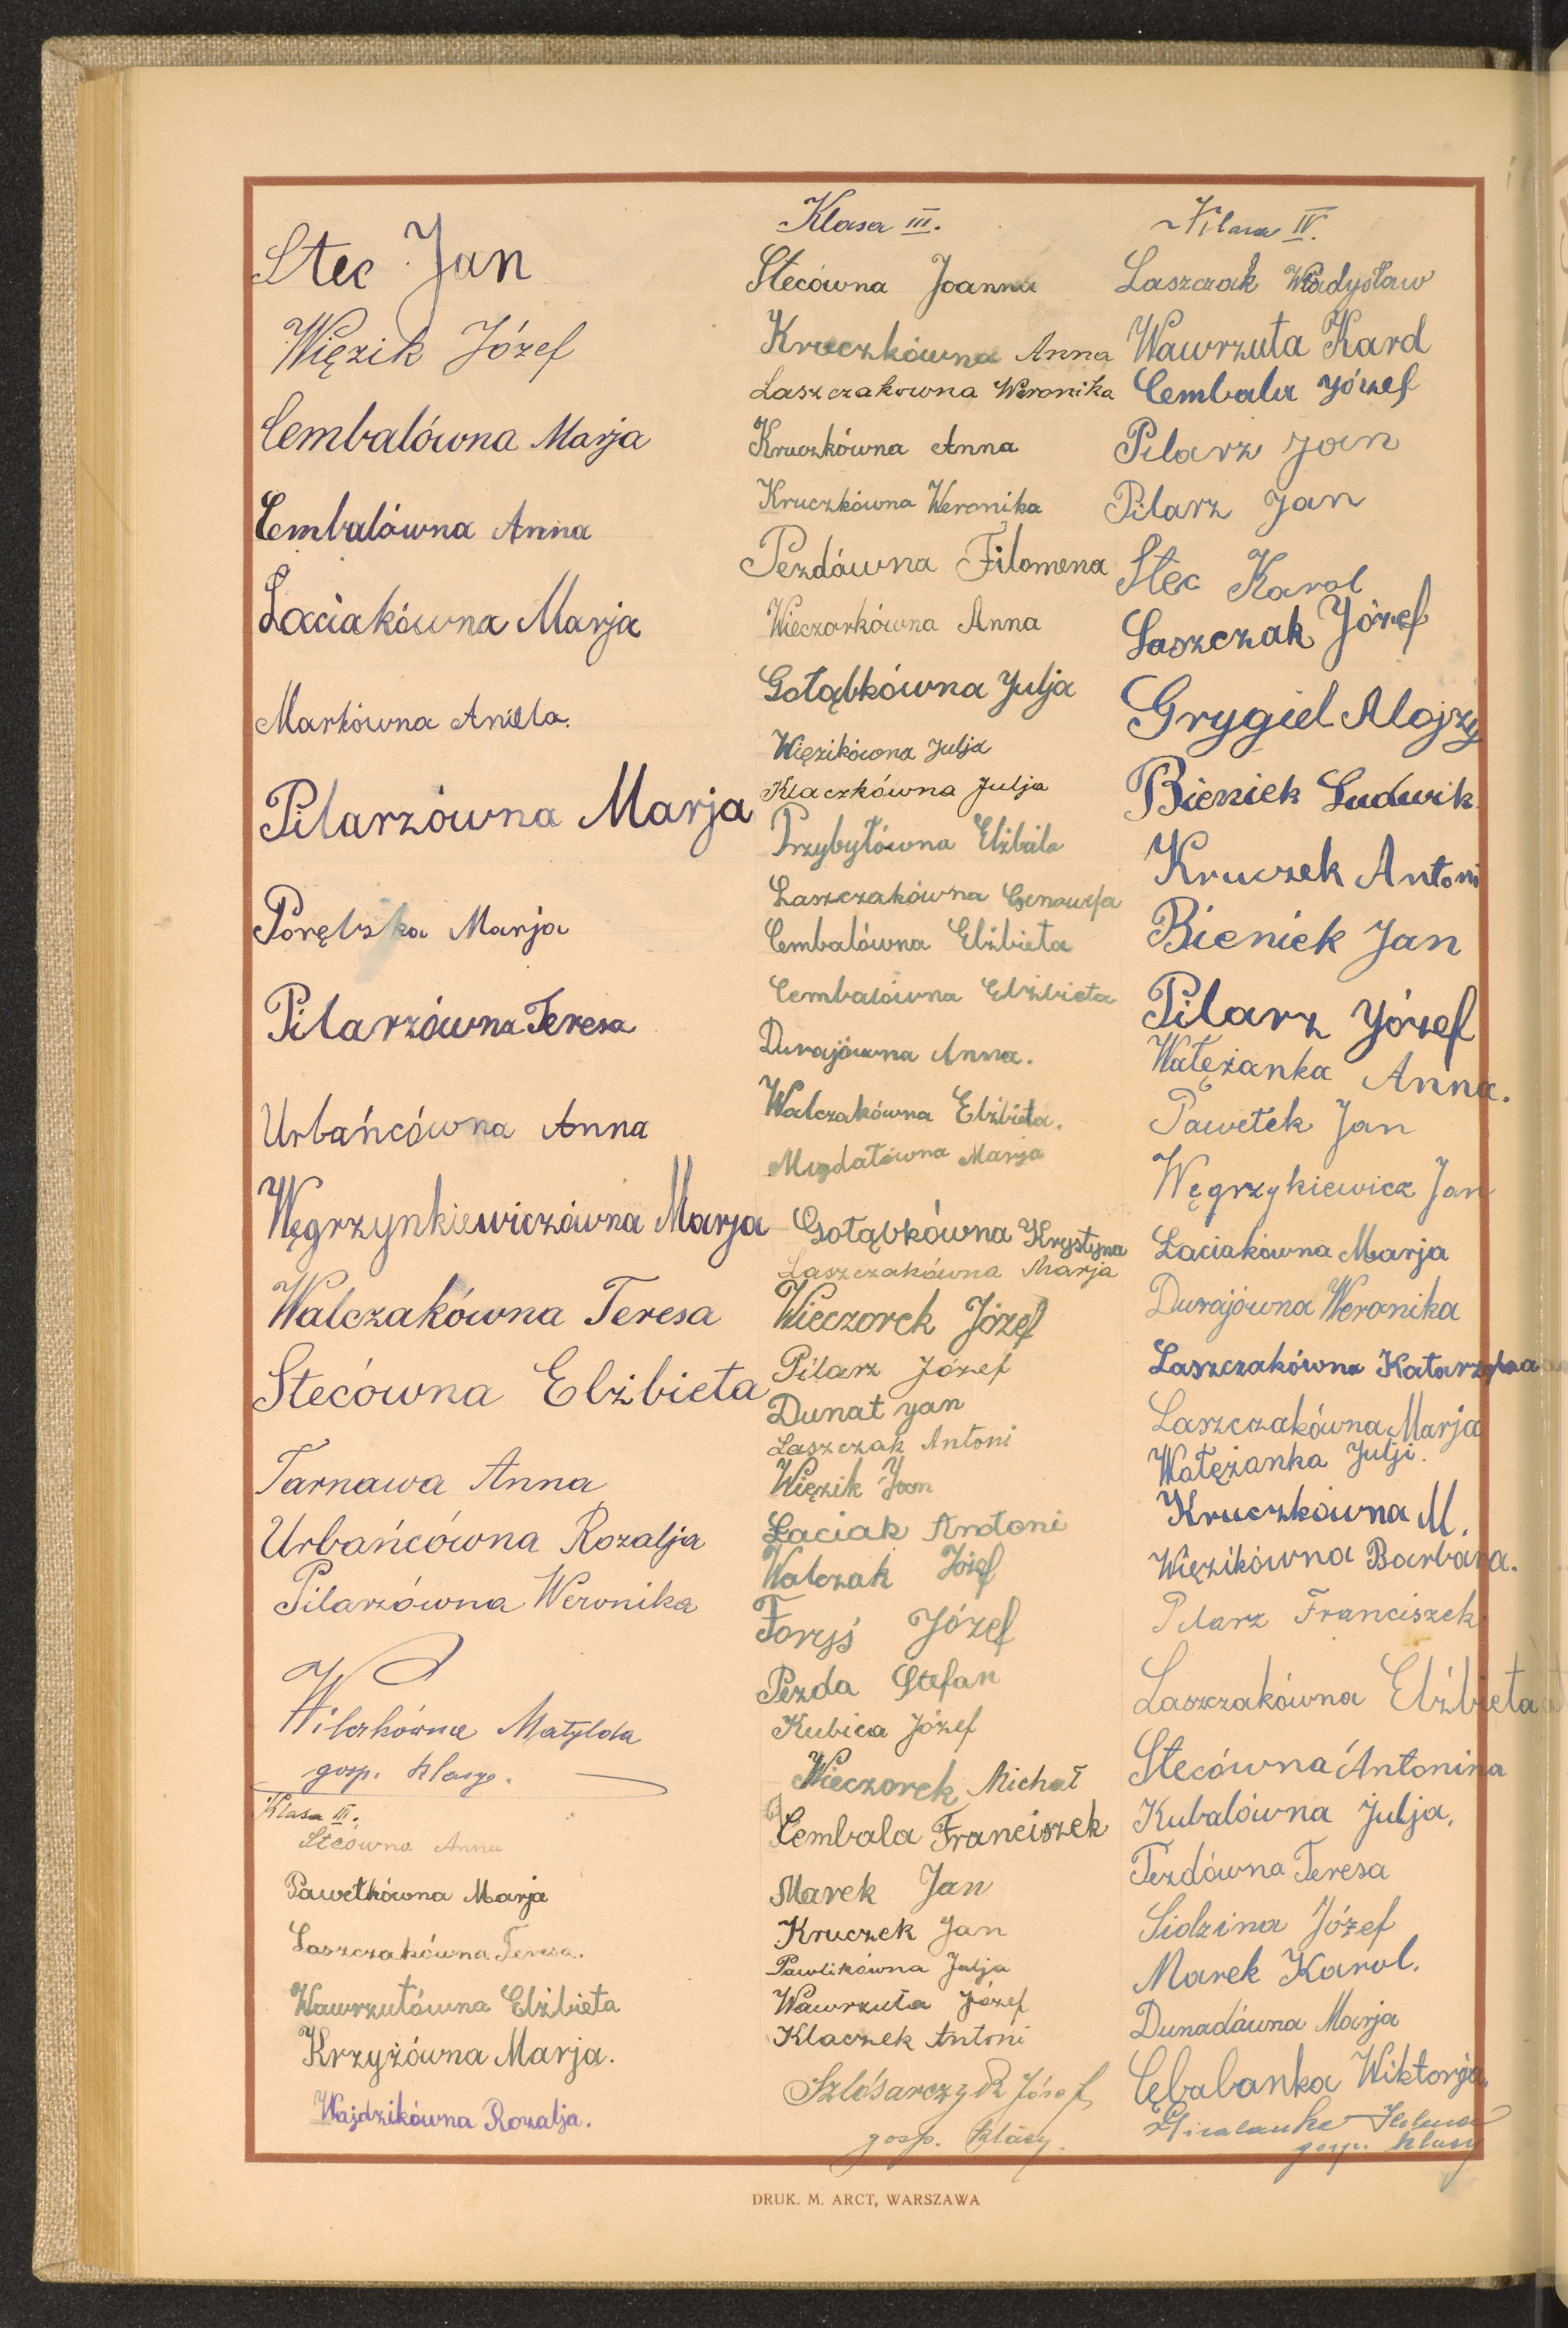 Stec Jan
Więzik Józef
Cembalówna Marja
Cembalówna Anna
Łaciakówna Marja
Markówna Aniela.
Pilarzówna Marja
Porębska Marja
Pilarzówna Teresa
Urbańcówna Anna
Węgrzynkiewiczówna Marja
Walczakówna Teresa
Stecówna Elżbieta
Tarnawa Anna
Urbańcówna Rozalja
Pilarzówna Weronika
Wilczkówna Matylda
gosp. klasy.
Klasa III.
Stecówna Anna
Pawełkówna Marja
Laszczakówna Teresa.
Wawrzutówna Elżbieta
Krzyżówna Marja.
Wajdzikówna Rozalja.
Klasa III.
Stecówna Joanna
Kruczkówna Anna
Laszczakowna Weronika
Kruczkówna Anna
Kruczkówna Weronika
Pezdówna Filomena
Wieczorkówna Anna
Gołąbkówna Julja
Więzikówna Julja
Klaczkówna Julja
Przybyłówna Elżbieta
Laszczakówna Genowefa
Cembalówna Elżbieta
Cembalówna Elżbieta
Durajówna Anna.
Walczakówna Elżbieta.
Migdałówna Marja
Gołąbkówna Krystyna
Laszczakówna Marja
Wieczorek Józef
Pilarz Józef
Dunat Jan
Laszczak Antoni
Więzik Jan
Łaciak Antoni
Walczak Józef
Foryś Józef
Pezda Stefan
Kubica Józef
Wieczorek Michał
Cembala Franciszek
Marek Jan
Kruczek Jan
Pawlikówna Julja
Wawrzuta Józef
Klaczek Antoni
Szlósarczyk Józef
gosp. klasy.
Klasa IV.
Laszczak Władysław
Wawrzuta Karol
Cembala Józef
Pilarz Jan
Pilarz Jan
Stec Karol
Laszczak Józef
Grygiel Alojzy
Bieniek Ludwik
Kruczek Antoni
Bieniek Jan
Pilarz Józef
Wałężanka Anna.
Pawełek Jan
Węgrzykiewicz Jan
Łaciakówna Marja
Durajówna Weronika
Laszczakówna Katarzyna
Laszczakówna Marja
Wałężanka Julji.
Kruczkówna M.
Więzikówna Barbara.
Pilarz Franciszek
Laszczakówna Elżbieta
Stecówna Antonina
Kubalówna Julja.
Pezdówna Teresa
Sidzina Józef
Marek Karol.
Dunadówna Marja
Cębalanka Wiktorja.
Helena
gosp. klasy
DRUK. M. ARCT, WARSZAWA